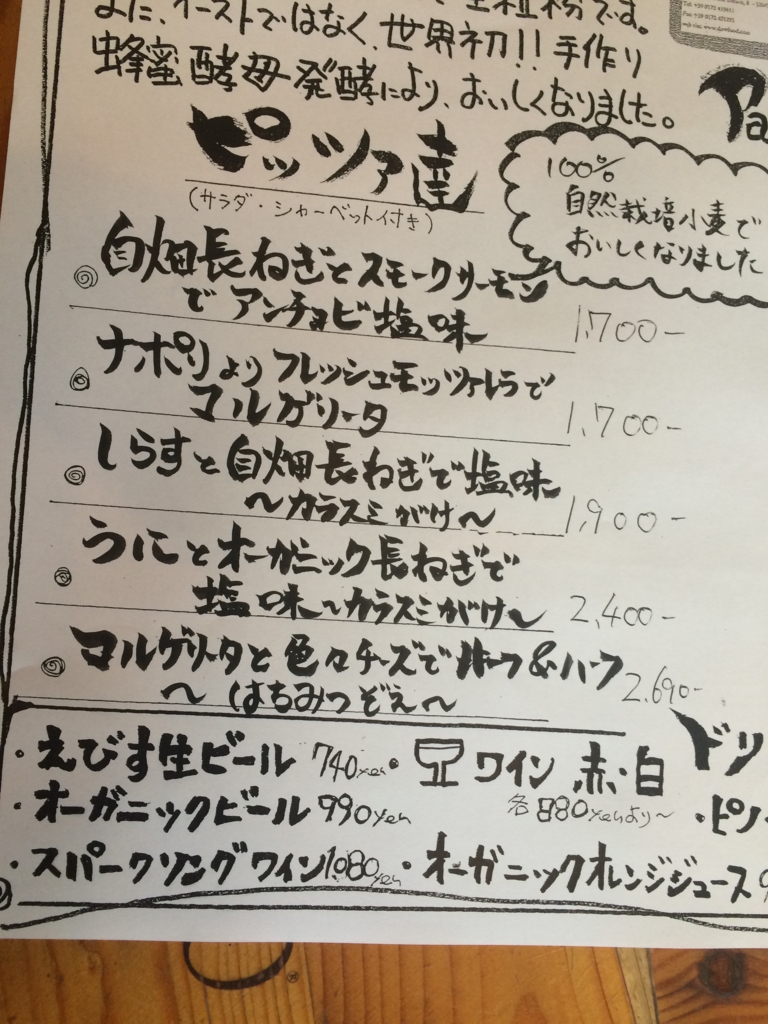 また、イーストではなく、世界初!! 手作り
蜂蜜酵母発酵により、おいしくなりました。
ピッツァ達
(サラダ・シャーベット付き)
100%
自然栽培小麦で
おいしくなりました
自畑長ねぎとスモークサーモン
でアンチョビ塩味 1,700-
ナポリよりフレッシュモッツァレラで
マルゲリータ 1,700-
しらすと自畑長ねぎで塩味
〜カラスミがけ〜 1,900-
うにとオーガニック長ねぎで
塩味〜カラスミがけ〜 2,400-
マルゲリータと色々チーズでハーフ&ハーフ 2,690-
〜はちみつぞえ〜
・えびす生ビール 740yen ・ワイン 赤・白
各880yenより〜
・オーガニックビール 990yen
・スパークリングワイン 1,080yen ・オーガニックオレンジジュース
ドリ